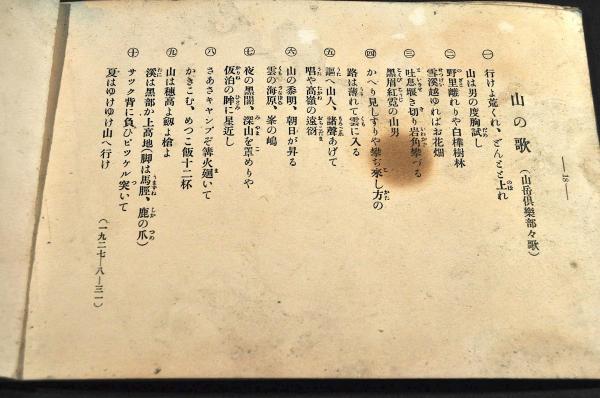 —18—
山の歌（山岳倶樂部々歌）
㊀ 行けよ荒くれ、どんとと上れ
山は男の度胸試し
㊁ 野里離れりや白樺樹林
雪溪越ゆればお花畑
㊂ 吐息堰き切り岩角攀づる
黑眉紅霓の山男
㊃ かへり見しすりや攀ぢ來し方の
路は薄れて雲に入る
㊄ 謳へ山人、諸聲あげて
唱や高嶺の遠谺
㊅ 山の黍明、朝日が昇る
雲の海原、峯の嶋
㊆ 夜の黑闇、深山を罩めりや
仮泊の眸に星近し
㊇ さあさキャンプぞ篝火廻いて
かきこむ、めつこ飯十二杯
㊈ 山は穗高よ劔よ槍よ
溪は黑部か上高地（脚は馬脛、鹿の爪）
㊉ サック背に負ひピッケル突いて
夏はゆけゆけ山へ行け
（一九二七—八—三一）